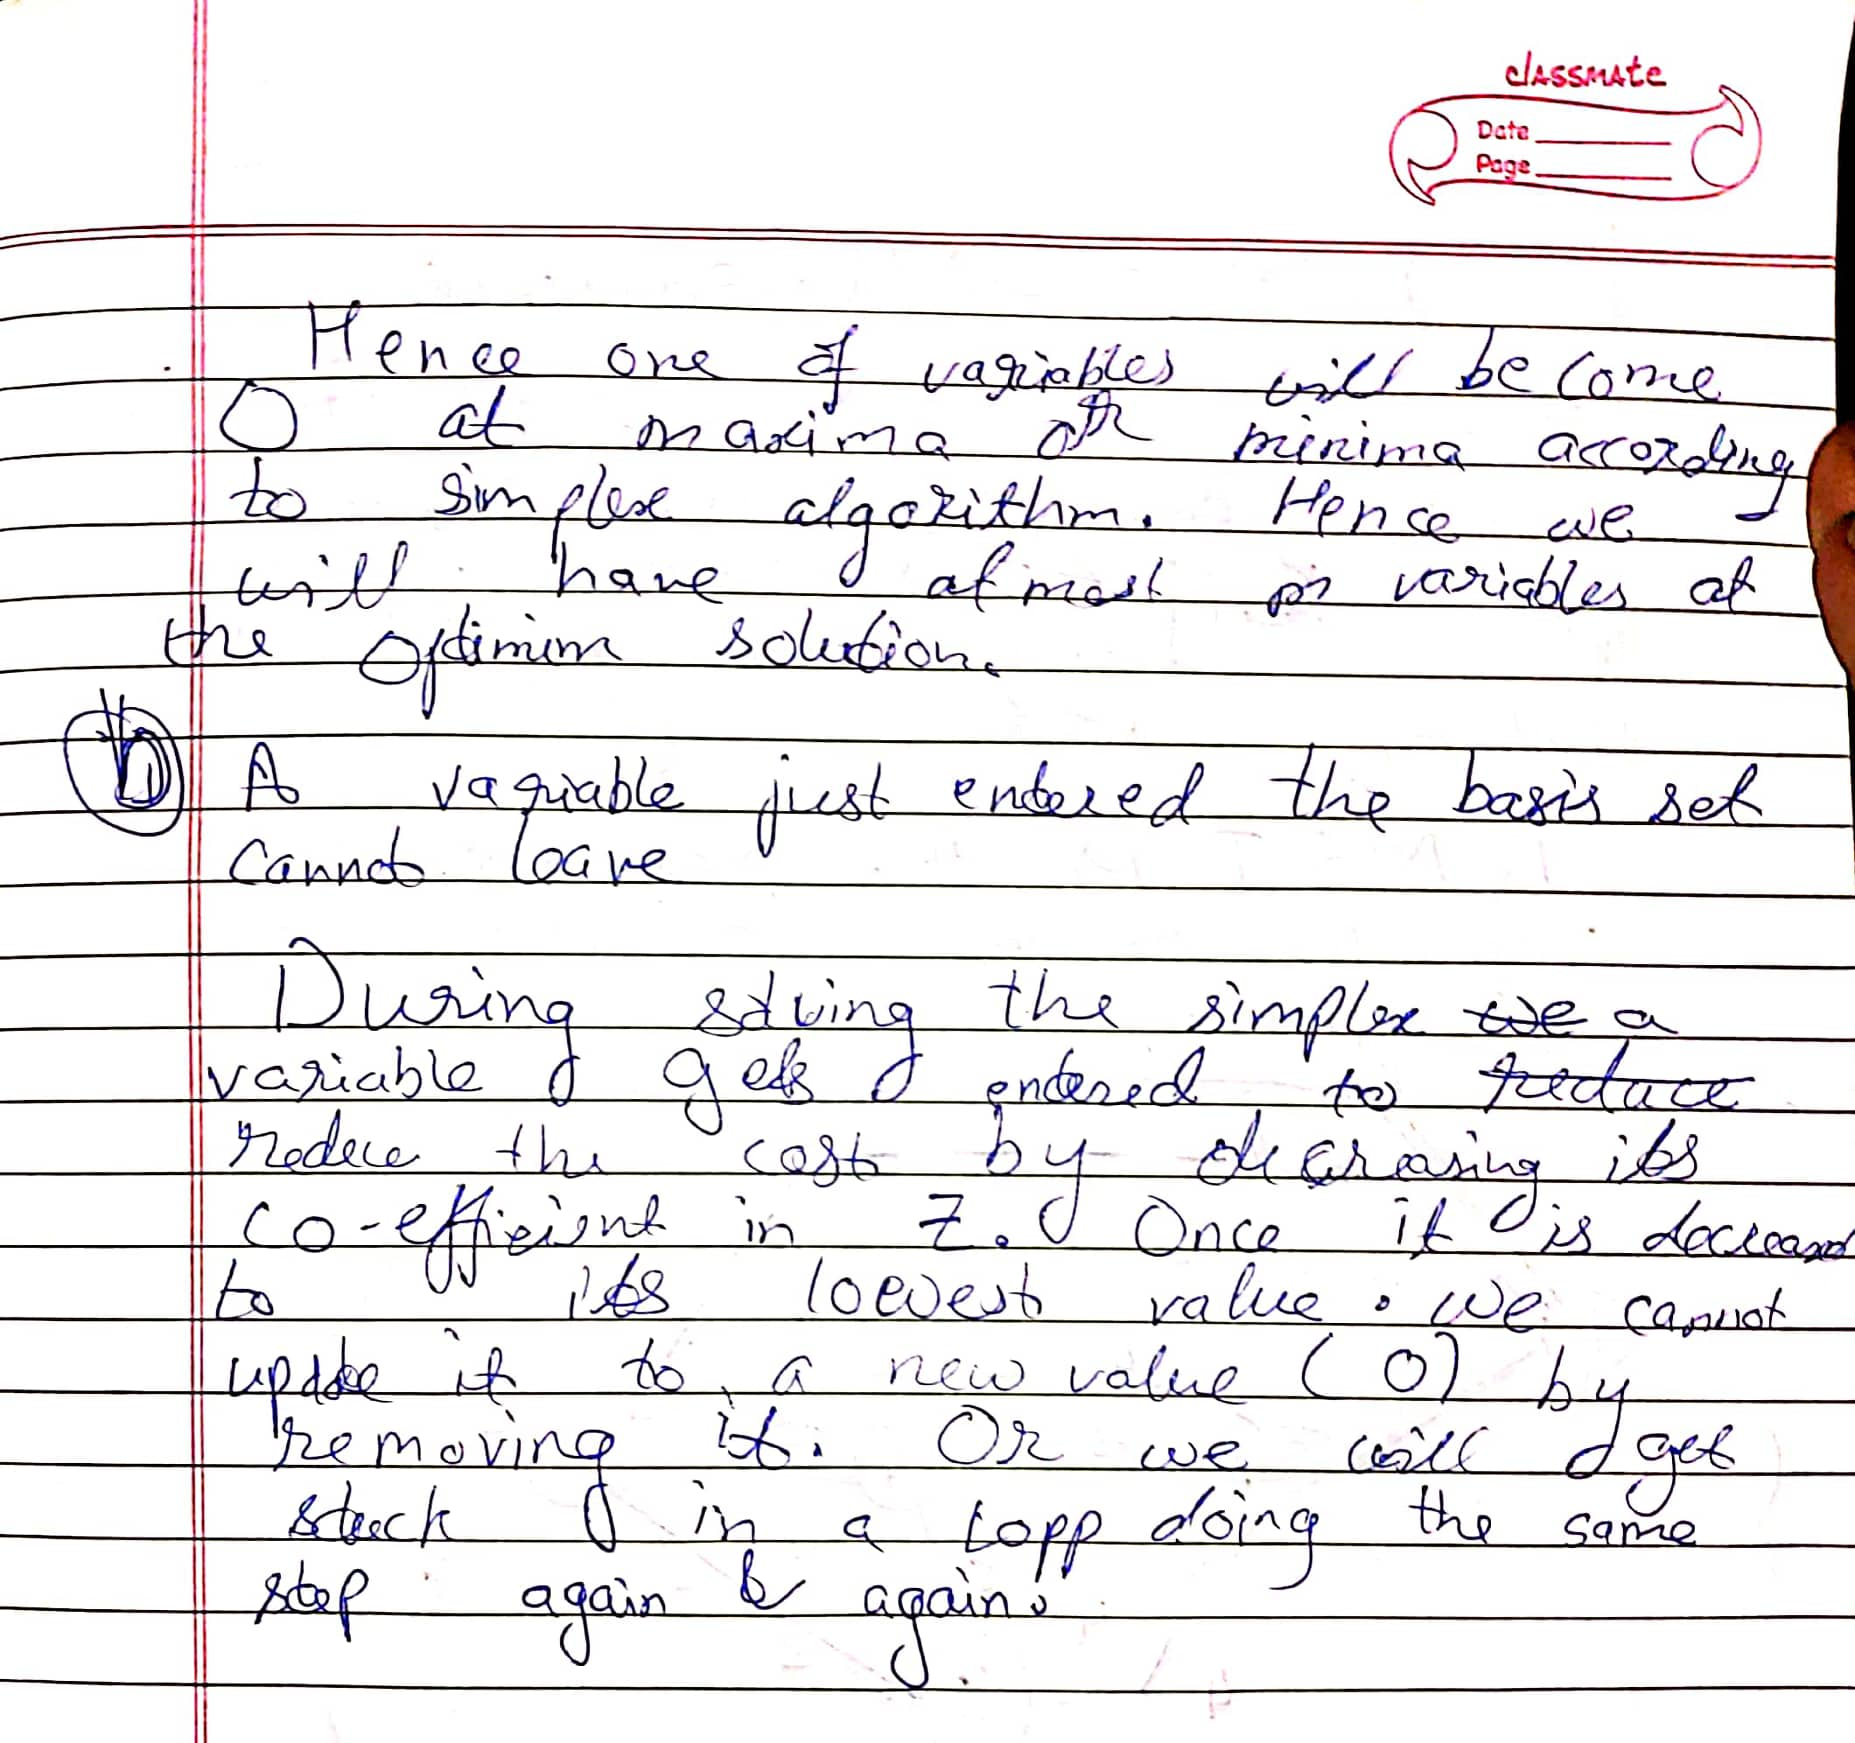 classmate
Date
Page
Hence one of variables will become
0 at maxima or minima according
to simplex algorithm. Hence we
will have atmost m variables at
the optimim solution.
b A variable just entered the basis set
cannot leave
During solving the simplex we a
variable gets entered to reduce
reduce the cost by decreasing its
co-efficient in Z. Once it is decreased
to its lowest value. we cannot
update it to a new value (0) by
removing it. Or we will get
stuck in a lopp doing the same
step again & again.